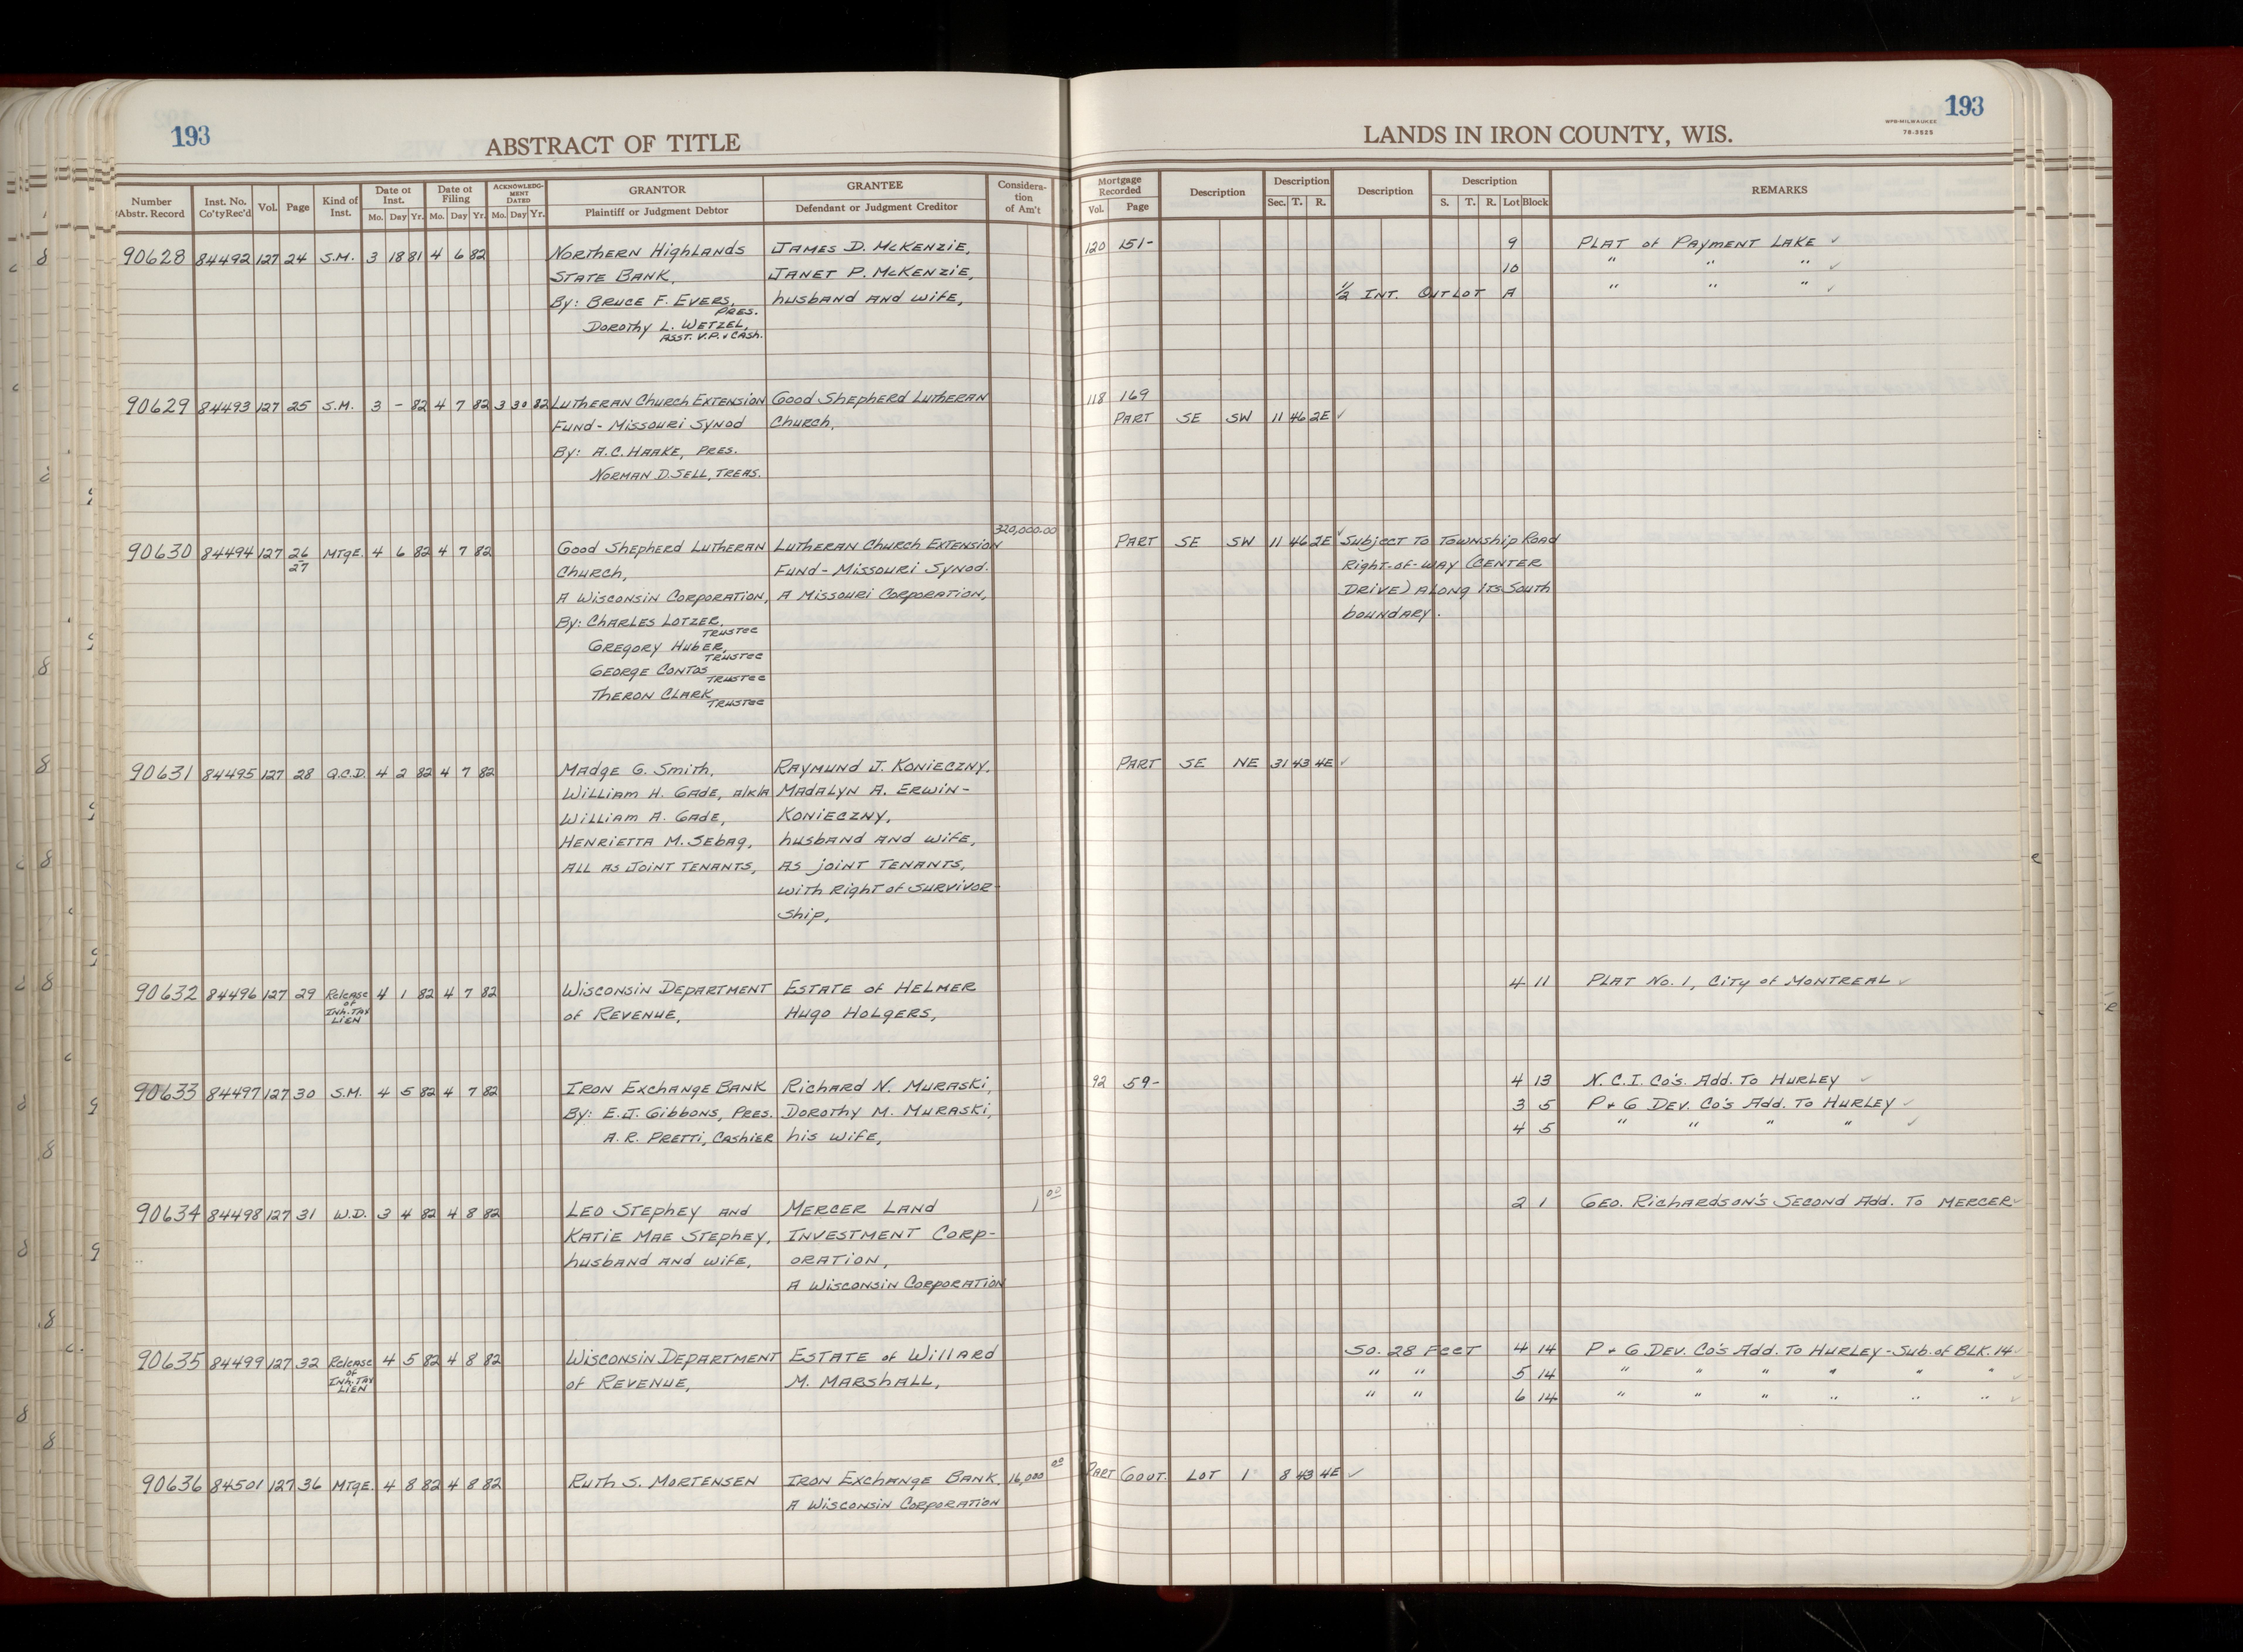 193
ABSTRACT OF TITLE
Number Abstr. Record Inst. No. Co'ty Rec'd Vol. Page Kind of Inst. Date of Inst. Mo. Day Yr. Date of Filing Mo. Day Yr. ACKNOWLEDG-MENT DATED Mo. Day Yr. GRANTOR Plaintiff or Judgment Debtor GRANTEE Defendant or Judgment Creditor Considera-tion of Am't
90628 84492 127 24 S.M. 3 18 81 4 6 82 Northern Highlands James D. McKenzie,
State Bank, Janet P. McKenzie,
By: Bruce F. Evers, husband and wife,
Pres.
Dorothy L. Wetzel,
Asst. V.P. & Cash.
90629 84493 127 25 S.M. 3 - 82 4 7 82 3 30 82 Lutheran Church Extension Good Shepherd Lutheran
Fund - Missouri Synod Church,
By: A.C. Haake, Pres.
Norman D. Sell, Treas.
320,000.00
90630 84494 127 26 27 Mtge. 4 6 82 4 7 82 Good Shepherd Lutheran Lutheran Church Extension
Church, Fund - Missouri Synod.
A Wisconsin Corporation, A Missouri Corporation,
By: Charles Lotzer,
Trustee
Gregory Huber,
Trustee
George Contos
Trustee
Theron Clark
Trustee
90631 84495 127 28 Q.C.D. 4 2 82 4 7 82 Madge G. Smith, Raymund J. Konieczny,
William H. Gade, a/k/a Madalyn A. Erwin-
William A. Gade, Konieczny,
Henrietta M. Sebag, husband and wife,
All as Joint Tenants, As joint tenants,
with Right of Survivor-
ship,
90632 84496 127 29 Release of Inh. Tax Lien 4 1 82 4 7 82 Wisconsin Department Estate of Helmer
of Revenue, Hugo Holgers,
90633 84497 127 30 S.M. 4 5 82 4 7 82 Iron Exchange Bank Richard N. Muraski,
By: E.J. Gibbons, Pres. Dorothy M. Muraski,
A.R. Pretti, Cashier his wife,
90634 84498 127 31 W.D. 3 4 82 4 8 82 Leo Stephey and Mercer Land 1 00
Katie Mae Stephey, Investment Corp-
husband and wife, oration,
A Wisconsin Corporation
90635 84499 127 32 Release of Inh. Tax Lien 4 5 82 4 8 82 Wisconsin Department Estate of Willard
of Revenue, M. Marshall,
90636 84501 127 36 Mtge. 4 8 82 4 8 82 Ruth S. Mortensen Iron Exchange Bank, 16,000 00
A Wisconsin Corporation
193
WPB-MILWAUKEE
78-3525
LANDS IN IRON COUNTY, WIS.
Mortgage Recorded Vol. Page Description Description Sec. T. R. Description Description S. T. R. Lot Block REMARKS
120 151- 9 Plat of Payment Lake ✓
10 " " " ✓
1/2 Int. Outlot A " " " ✓
118 169
Part SE SW 11 46 2E ✓
Part SE SW 11 46 2E ✓ Subject to Township Road
Right-of-way (Center
Drive) along its South
boundary.
Part SE NE 31 43 4E ✓
4 11 Plat No. 1, City of Montreal ✓
92 59- 4 13 N.C.I. Co's. Add. To Hurley ✓
3 5 P & G Dev. Co's Add. To Hurley ✓
4 5 " " " " ✓
2 1 Geo. Richardson's Second Add. To Mercer ✓
So. 28 Feet 4 14 P & G Dev. Co's Add. To Hurley - Sub. of Blk. 14 ✓
" " 5 14 " " " " " " ✓
" " 6 14 " " " " " " ✓
Part Govt. Lot 1 8 43 4E ✓